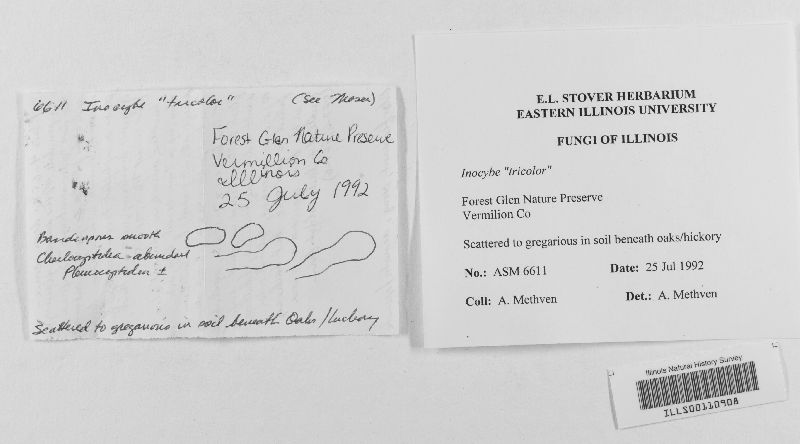 6611 Inocybe "tricolor" (see Moser)
Forest Glen Nature Preserve
Vermillion Co
Illinois
25 July 1992
Basidiospores smooth
Cheilocystidia - abundant
Pleurocystidia ±
Scattered to gregarious in soil beneath Oaks/hickory
E.L. STOVER HERBARIUM
EASTERN ILLINOIS UNIVERSITY
FUNGI OF ILLINOIS
Inocybe "tricolor"
Forest Glen Nature Preserve
Vermilion Co
Scattered to gregarious in soil beneath oaks/hickory
No.: ASM 6611 Date: 25 Jul 1992
Coll: A. Methven Det.: A. Methven
Illinois Natural History Survey
ILLS00110908